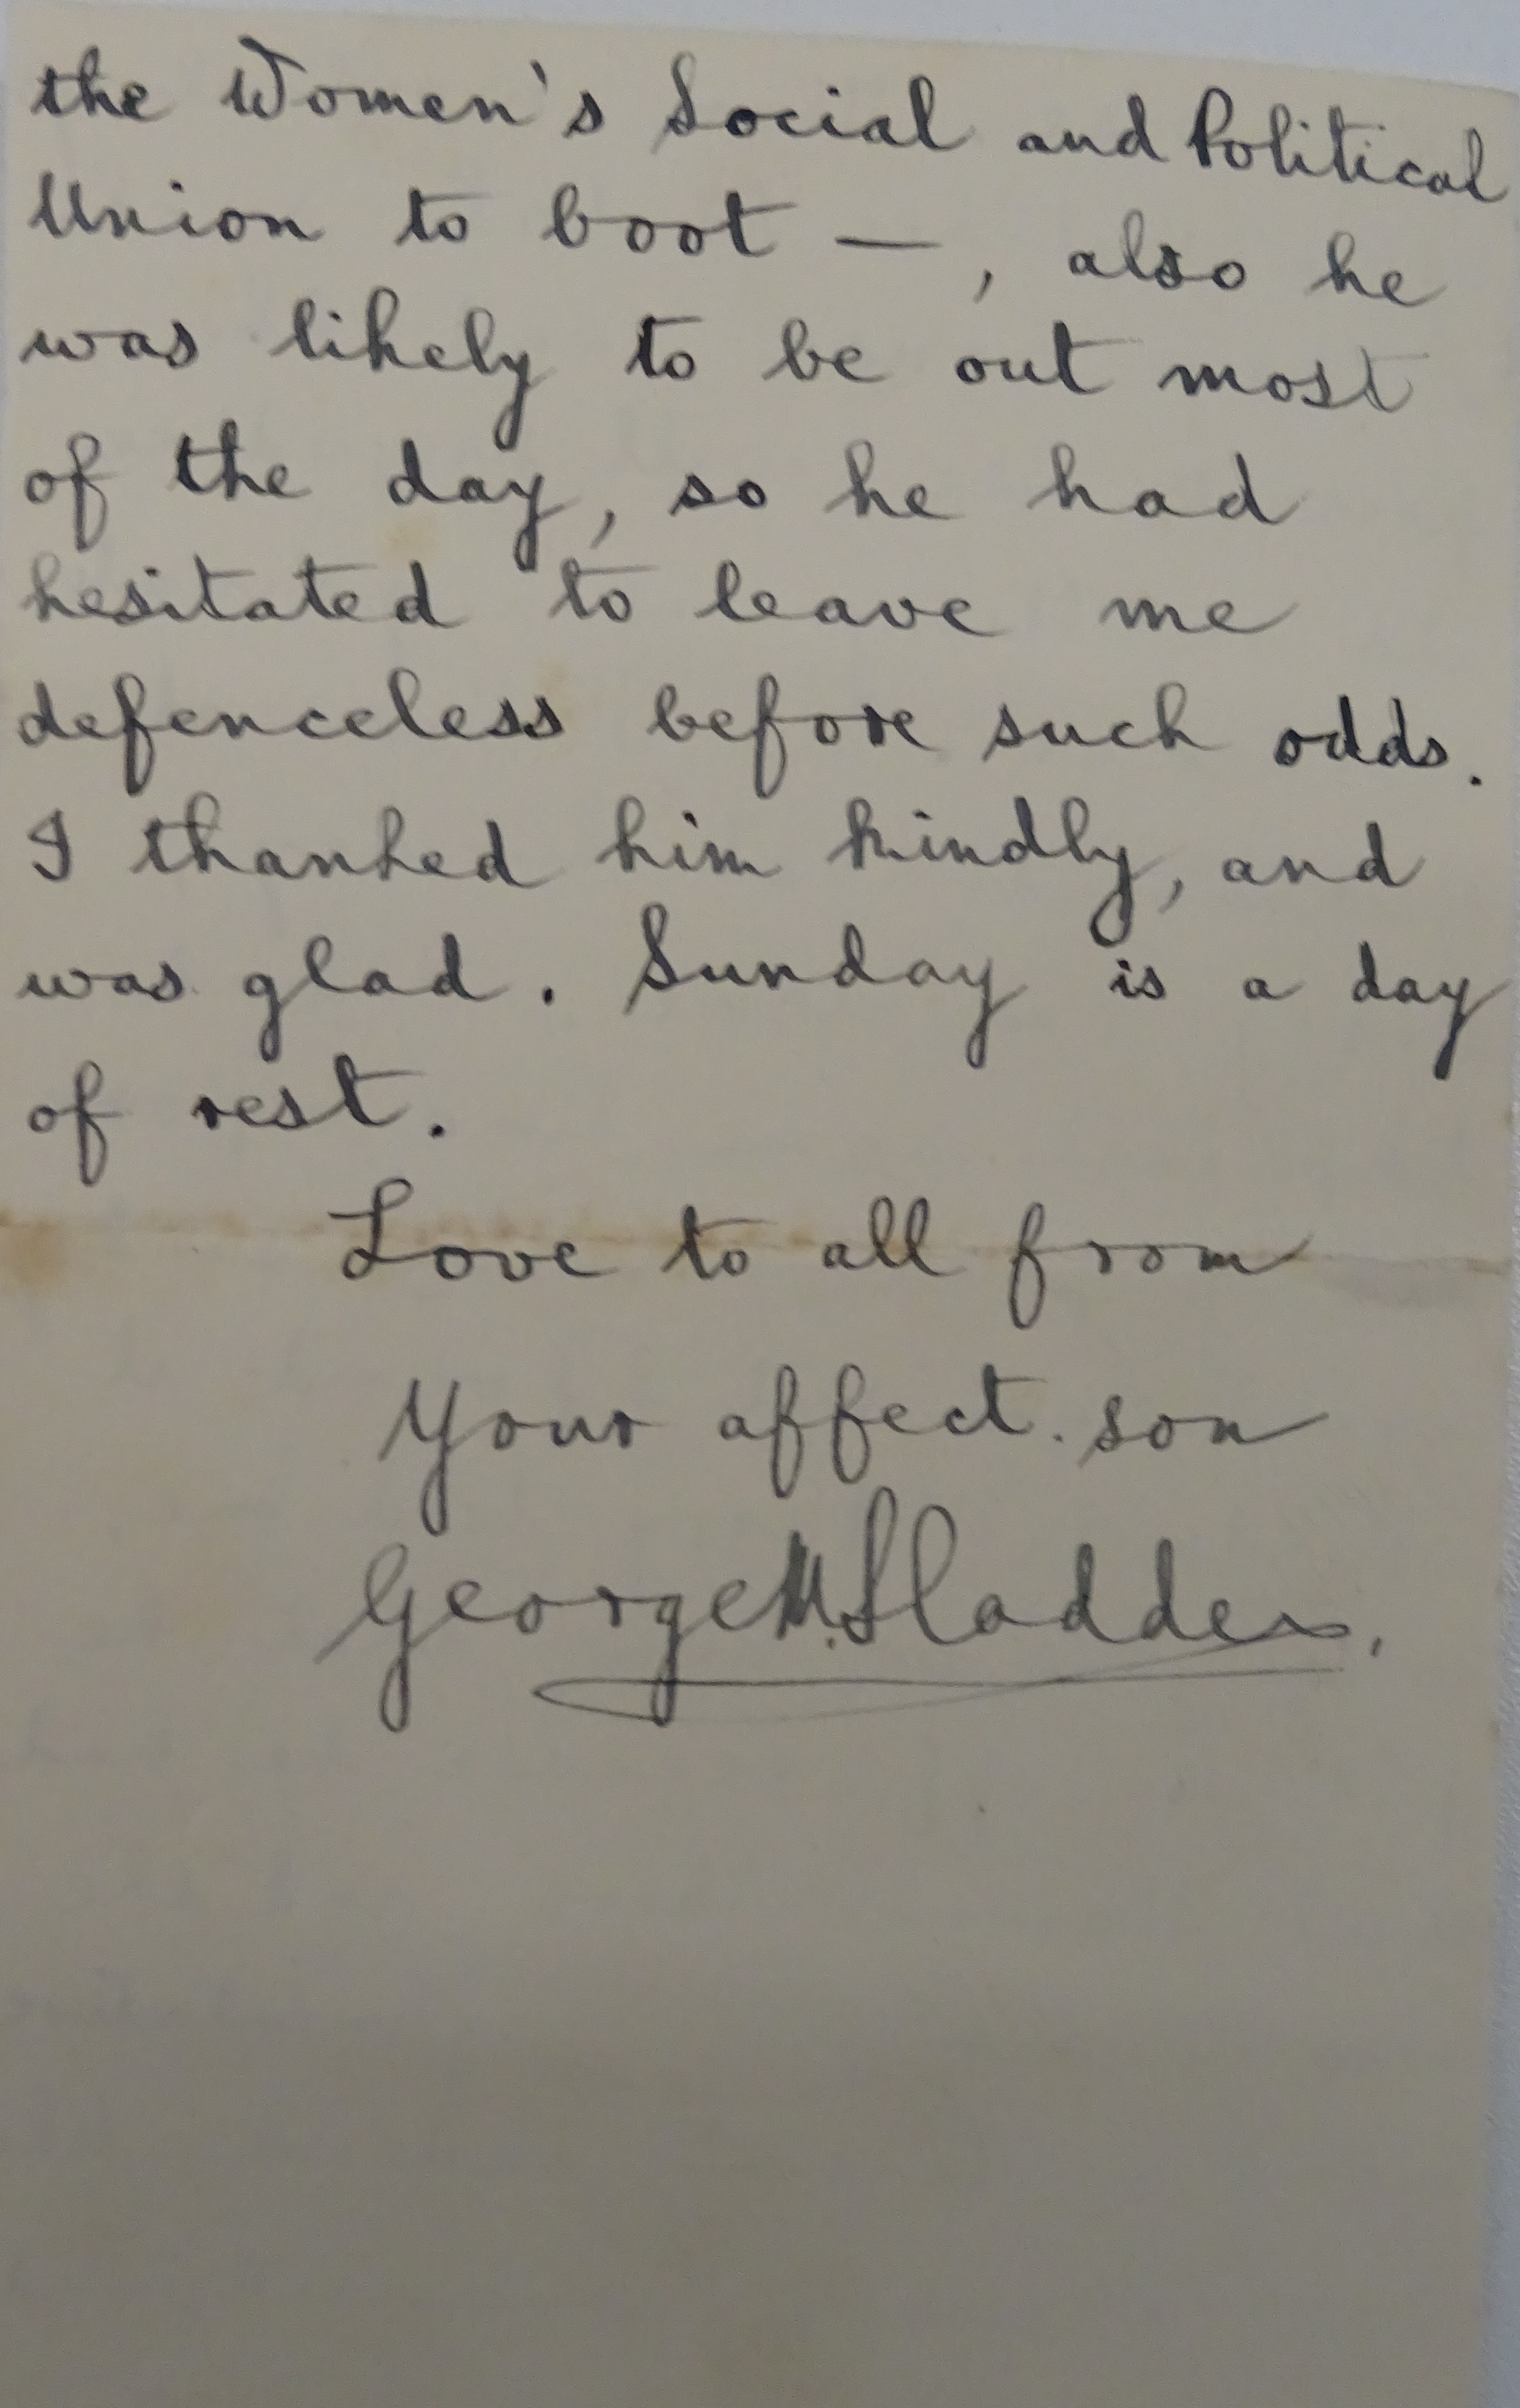 the Women's Social and Political
Union to boot —, also he
was likely to be out most
of the day, so he had
hesitated to leave me
defenceless before such odds.
I thanked him kindly, and
was glad. Sunday is a day
of rest.
Love to all from
Your affect. son
George M. Sladden.